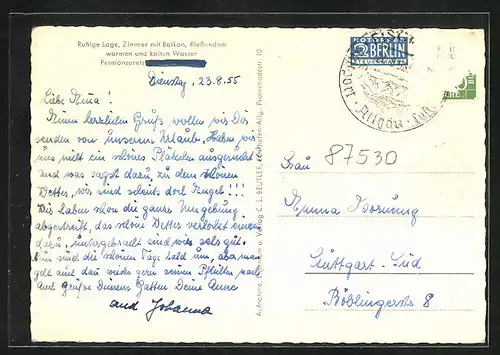 Ruhige Lage, Zimmer mit Balkon, fließendem
warmen und kalten Wasser
Pensionspreis
Dienstag, 23.8.55
Liebe Anna!
Einen herzlichen Gruß wollen wir Dir
senden von unserem Urlaub. Haben wir
uns nicht ein schönes Plätzchen ausgesucht
und was sagst dazu, zu dem schönen
Wetter, wir sind scheints doch Engel!!!
Wir haben schon die ganze Umgebung
abgestreift, das schöne Wetter verlockt einen
dazu, untergebracht sind wir sehr gut.
Nun sind die schönen Tage bald um, aber man
geht auch dann wieder gern seinen Pflichten nach
und Grüße Deinen Gatten Deine Anne
und Johanna
Verlag C. L. BEUTLER
Promenadestr. 10
NOTOPFER
2 BERLIN
STEUERMARKE
Allgäu
Frau
87530
Anna Bornung
Stuttgart-Süd
Böblingerstr 8